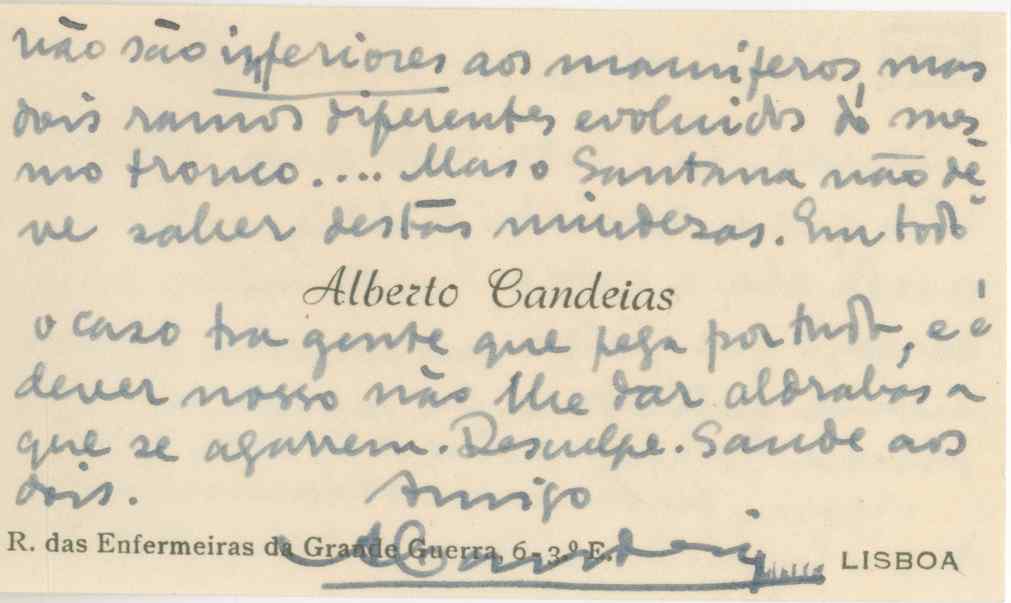 não são inferiores aos mamiferos, mas
dois ramos diferentes evoluidos do mes-
mo tronco.... Mas o Santana não de-
ve saber destas mindezas. Em todo
Alberto Candeias
o caso ha gente que pega por tudo, e é
dever nosso não lhe dar aldrabas a
que se agarrem. Desculpe. Saude aos
dois. Amigo
R. das Enfermeiras da Grande Guerra, 6-3.º E. LISBOA